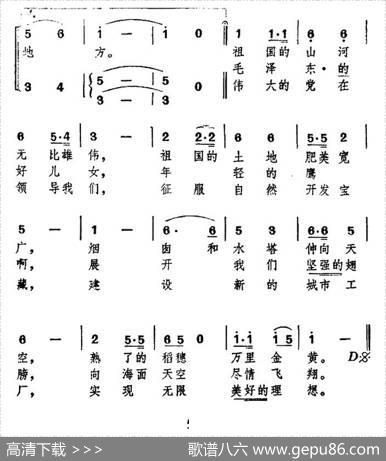 5 6 | i — | i 0 | 1 1·1 | 6 6 |
地 方。 祖 国的 山 河
毛 泽 东·的
3 4 5 — 5 — 伟 大的 党 在
3 — 3 —
6 5·4 | 3 — | 2 2·2 | 6 6 | 5·5 2 |
无 比雄 伟, 祖 国的 土 地 肥美 宽
好 儿 女, 年 轻的 鹰
领 导我 们, 征 服 自 然 开发 宝
5 — | 1 — | 6· 6 | 5 3 | 6·6 5 |
广, 烟 囱 和 水 塔 伸向 天
啊, 展 开 我 们 坚强的 翅
藏, 建 设 新 的 城市 工
6 — | 2 5·5 | 65 0 | i·i i5 | i — |
空, 熟 了的 稻穗 万里 金 黄。 D
膀, 向 海面 天空 尽情 飞 翔。
厂, 实 现 无限 美好的 理 想。
高清下载 >>> 歌谱八六 www.gepu86.com